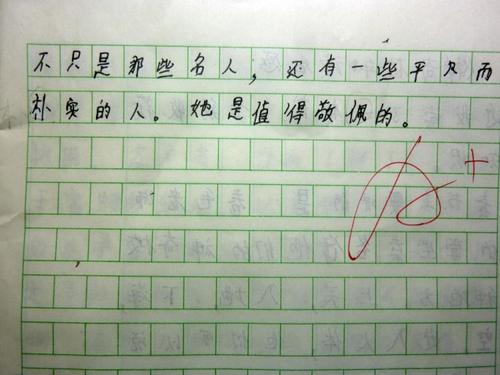 不只是那些名人,还有一些平凡而
朴实的人。她是值得敬佩的。